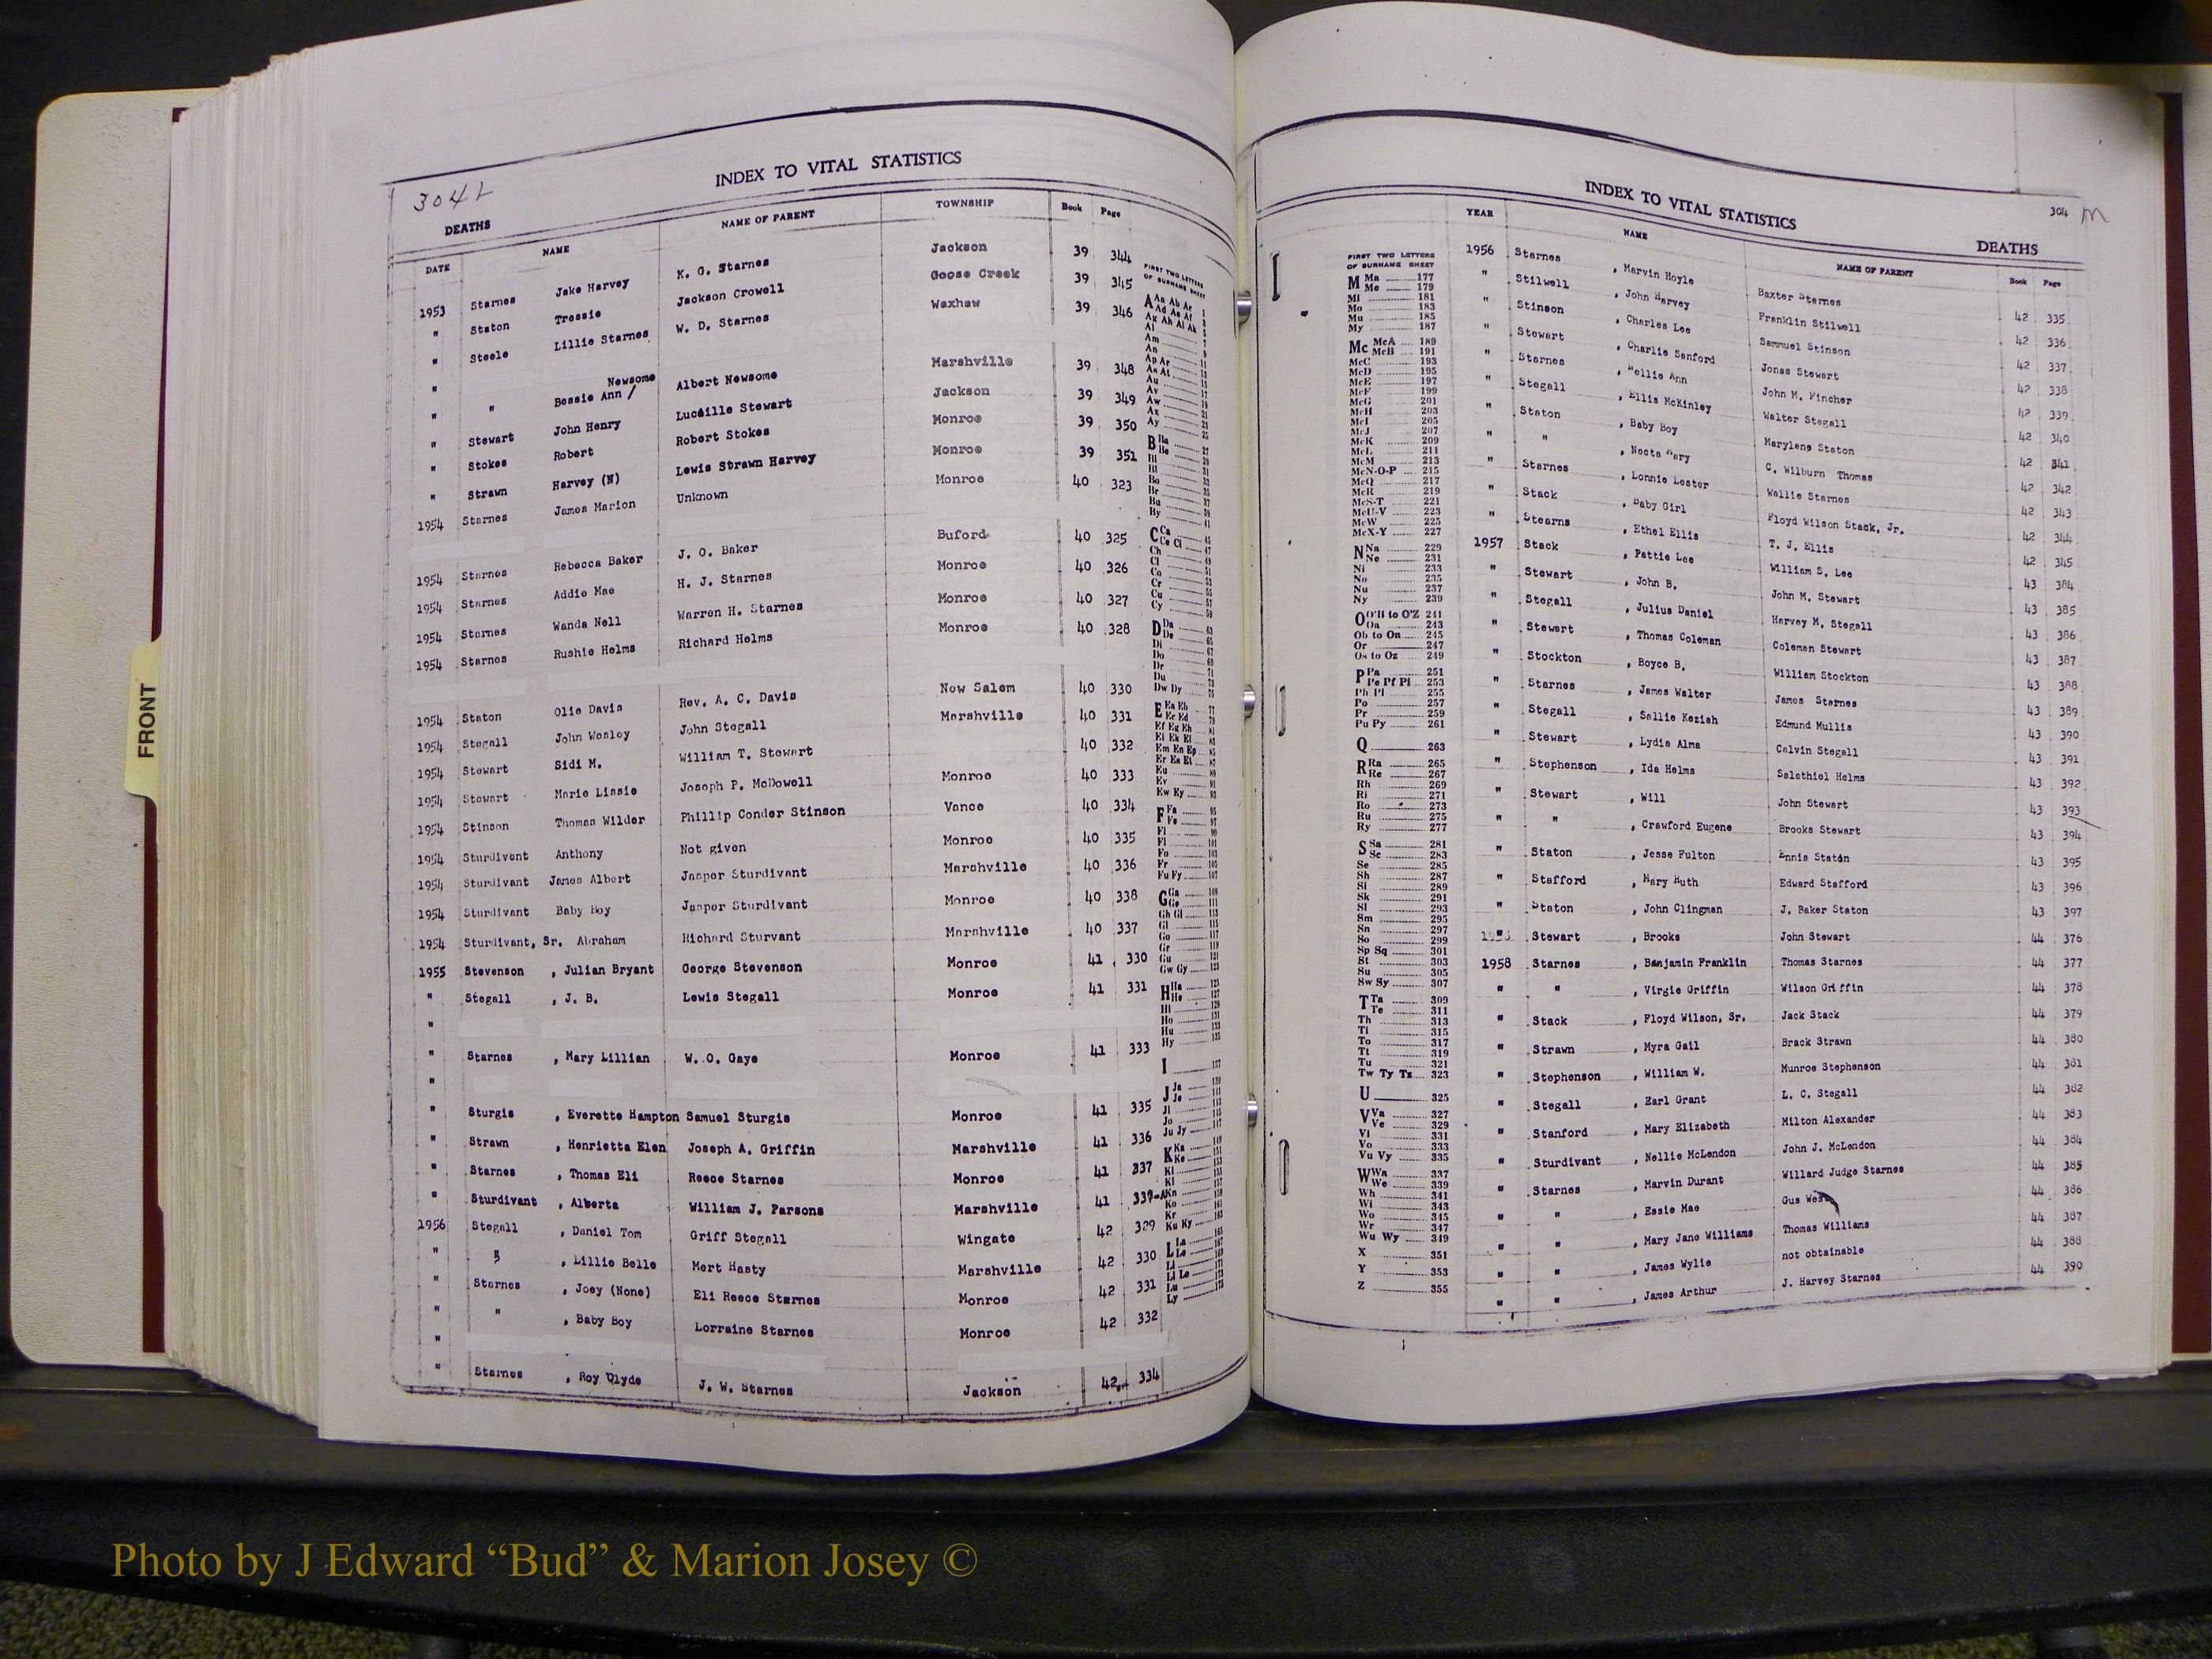 FRONT
304 L
INDEX TO VITAL STATISTICS
DEATHS
DATE NAME NAME OF PARENT TOWNSHIP Book Page
1953 Starnes Jake Harvey K. G. Starnes Jackson 39 344
" Staton Tressie Jackson Crowell Goose Creek 39 345
" Steele Lillie Starnes W. D. Starnes Waxhaw 39 346
" " Newsome Bessie Ann / Albert Newsome Marshville 39 348
" Stewart John Henry Lucille Stewart Jackson 39 349
" Stokes Robert Robert Stokes Monroe 39 350
" Strawn Harvey (N) Lewis Strawn Harvey Monroe 39 351
1954 Starnes James Marion Unknown Monroe 40 323
1954 Starnes Rebecca Baker J. O. Baker Buford 40 325
1954 Starnes Addie Mae H. J. Starnes Monroe 40 326
1954 Starnes Wanda Nell Warren H. Starnes Monroe 40 327
1954 Starnes Rushie Helms Richard Helms Monroe 40 328
1954 Staton Olie Davis Rev. A. C. Davis New Salem 40 330
1954 Stegall John Wesley John Stegall Marshville 40 331
1954 Stewart Sidi M. William T. Stewart 40 332
1954 Stewart Marie Lissie Joseph P. McDowell Monroe 40 333
1954 Stinson Thomas Wilder Phillip Conder Stinson Vance 40 334
1954 Sturdivant Anthony Not given Monroe 40 335
1954 Sturdivant James Albert Jasper Sturdivant Marshville 40 336
1954 Sturdivant Baby Boy Jasper Sturdivant Monroe 40 338
1954 Sturdivant, Sr. Abraham Richard Sturvant Marshville 40 337
1955 Stevenson , Julian Bryant George Stevenson Monroe 41 330
" Stegall , J. B. Lewis Stegall Monroe 41 331
"
" Starnes , Mary Lillian W. O. Gaye Monroe 41 333
"
" Sturgis , Everette Hampton Samuel Sturgis Monroe 41 335
" Strawn , Henrietta Elen Joseph A. Griffin Marshville 41 336
" Starnes , Thomas Eli Reece Starnes Monroe 41 337
" Sturdivant , Alberta William J. Parsons Marshville 41 337-A
1956 Stegall , Daniel Tom Griff Stegall Wingate 42 329
" " , Lillie Belle Mert Hasty Marshville 42 330
" Starnes , Joey (None) Eli Reece Starnes Monroe 42 331
" " , Baby Boy Lorraine Starnes Monroe 42 332
"
" Starnes , Roy Clyde J. W. Starnes Jackson 42 334
INDEX TO VITAL STATISTICS
304 m
DEATHS
YEAR NAME NAME OF PARENT Book Page
1956 Starnes , Marvin Hoyle Baxter Starnes 42 335
" Stilwell , John Harvey Franklin Stilwell 42 336
" Stinson , Charles Lee Sammuel Stinson 42 337
" Stewart , Charlie Sanford Jonas Stewart 42 338
" Starnes , Nellie Ann John M. Fincher 42 339
" Stegall , Ellis McKinley Walter Stegall 42 340
" Staton , Baby Boy Marylene Staton 42 341
" " , Necta Mary C. Wilburn Thomas 42 342
" Starnes , Lonnie Lester Wallie Starnes 42 343
" Stack , Baby Girl Floyd Wilson Stack, Jr. 42 344
" Stearns , Ethel Ellis T. J. Ellis 42 345
1957 Stack , Pattie Lee William S. Lee 43 384
" Stewart , John B. John M. Stewart 43 385
" Stegall , Julius Daniel Harvey M. Stegall 43 386
" Stewart , Thomas Coleman Coleman Stewart 43 387
" Stockton , Boyce B. William Stockton 43 388
" Starnes , James Walter James Starnes 43 389
" Stegall , Sallie Keziah Edmund Mullis 43 390
" Stewart , Lydia Alma Calvin Stegall 43 391
" Stephenson , Ida Helms Salathiel Helms 43 392
" Stewart , Will John Stewart 43 393
" " , Crawford Eugene Brooks Stewart 43 394
" Staton , Jesse Fulton Ennis Staton 43 395
" Stafford , Mary Ruth Edward Stafford 43 396
" Staton , John Clingman J. Baker Staton 43 397
" Stewart , Brooks John Stewart 44 376
1958 Starnes , Banjamin Franklin Thomas Starnes 44 377
" " , Virgie Griffin Wilson Griffin 44 378
" Stack , Floyd Wilson, Sr. Jack Stack 44 379
" Strawn , Myra Gail Brack Strawn 44 380
" Stephenson , William W. Munroe Stephenson 44 381
" Stegall , Earl Grant L. C. Stegall 44 382
" Stanford , Mary Elizabeth Milton Alexander 44 383
" Sturdivant , Nellie McLendon John J. McLendon 44 384
" Starnes , Marvin Durant Willard Judge Starnes 44 385
" " , Essie Mae Gus West 44 386
" " , Mary Jane Williams Thomas Williams 44 387
" " , James Wylie not obtainable 44 388
" " , James Arthur J. Harvey Starnes 44 390
FIRST TWO LETTERS
OF SURNAME SHEET
M Ma 177
Me 179
Mi 181
Mo 183
Mu 185
My 187
Mc McA 189
McB 191
McC 193
McD 195
McE 197
McF 199
McG 201
McH 203
McI 205
McJ 207
McK 209
McL 211
McM 213
McN-O-P 215
McQ 217
McR 219
McS-T 221
McU-V 223
McW 225
McX-Y 227
N Na 229
Ne 231
Ni 233
No 235
Nu 237
Ny 239
O O'B to O'Z 241
Oa 243
Ob to On 245
Or 247
Os to Oz 249
P Pa 251
Pe Pf Pi 253
Ph Pl 255
Po 257
Pr 259
Pu Py 261
Q 263
R Ra 265
Re 267
Rh 269
Ri 271
Ro 273
Ru 275
Ry 277
S Sa 281
Sc 283
Se 285
Sh 287
Si 289
Sk 291
Sl 293
Sm 295
Sn 297
So 299
Sp Sq 301
St 303
Su 305
Sw Sy 307
T Ta 309
Te 311
Th 313
Ti 315
To 317
Tt 319
Tu 321
Tw Ty Tz 323
U 325
V Va 327
Ve 329
Vi 331
Vo 333
Vu Vy 335
W Wa 337
We 339
Wh 341
Wi 343
Wo 345
Wr 347
Wu Wy 349
X 351
Y 353
Z 355
Photo by J Edward “Bud” & Marion Josey ©